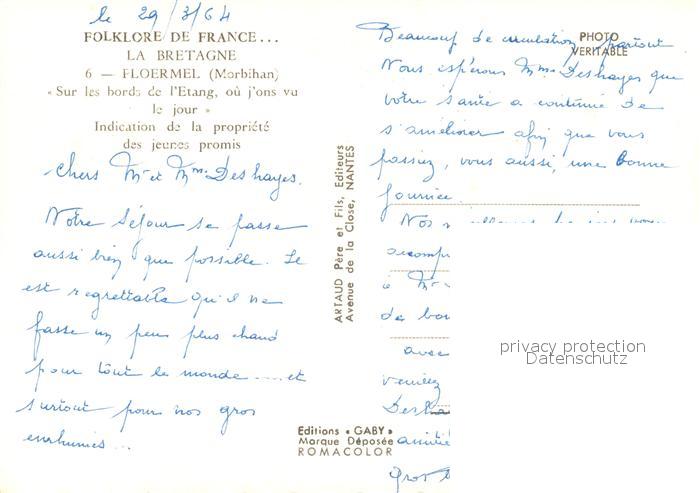 le 29/3/64
FOLKLORE DE FRANCE...
LA BRETAGNE
6 — FLOERMEL (Morbihan)
« Sur les bords de l'Etang, où j'ons vu
le jour »
Indication de la propriété
des jeunes promis
Chers Mr et Mme Deshayes.
Notre Séjour se passe
aussi bien que possible. Le
est regrettable qu'il ne
fasse un peu plus chaud
pour tout le monde .... et
surtout pour nos gros
enrhumés ...
ARTAUD Père et Fils, Editeurs
Avenue de la Close, NANTES
Editions « GABY »
Marque Déposée
ROMACOLOR
PHOTO
VERITABLE
Beaucoup de circulation partout
Nous espérons Mme Deshayes que
votre santé a continué de
s'améliorer afin que vous
passiez, vous aussi, une bonne
journée.
Nos
accomp
à Mr
de bon
avec
veuillez
Desha
amitié
gros b
privacy protection
Datenschutz